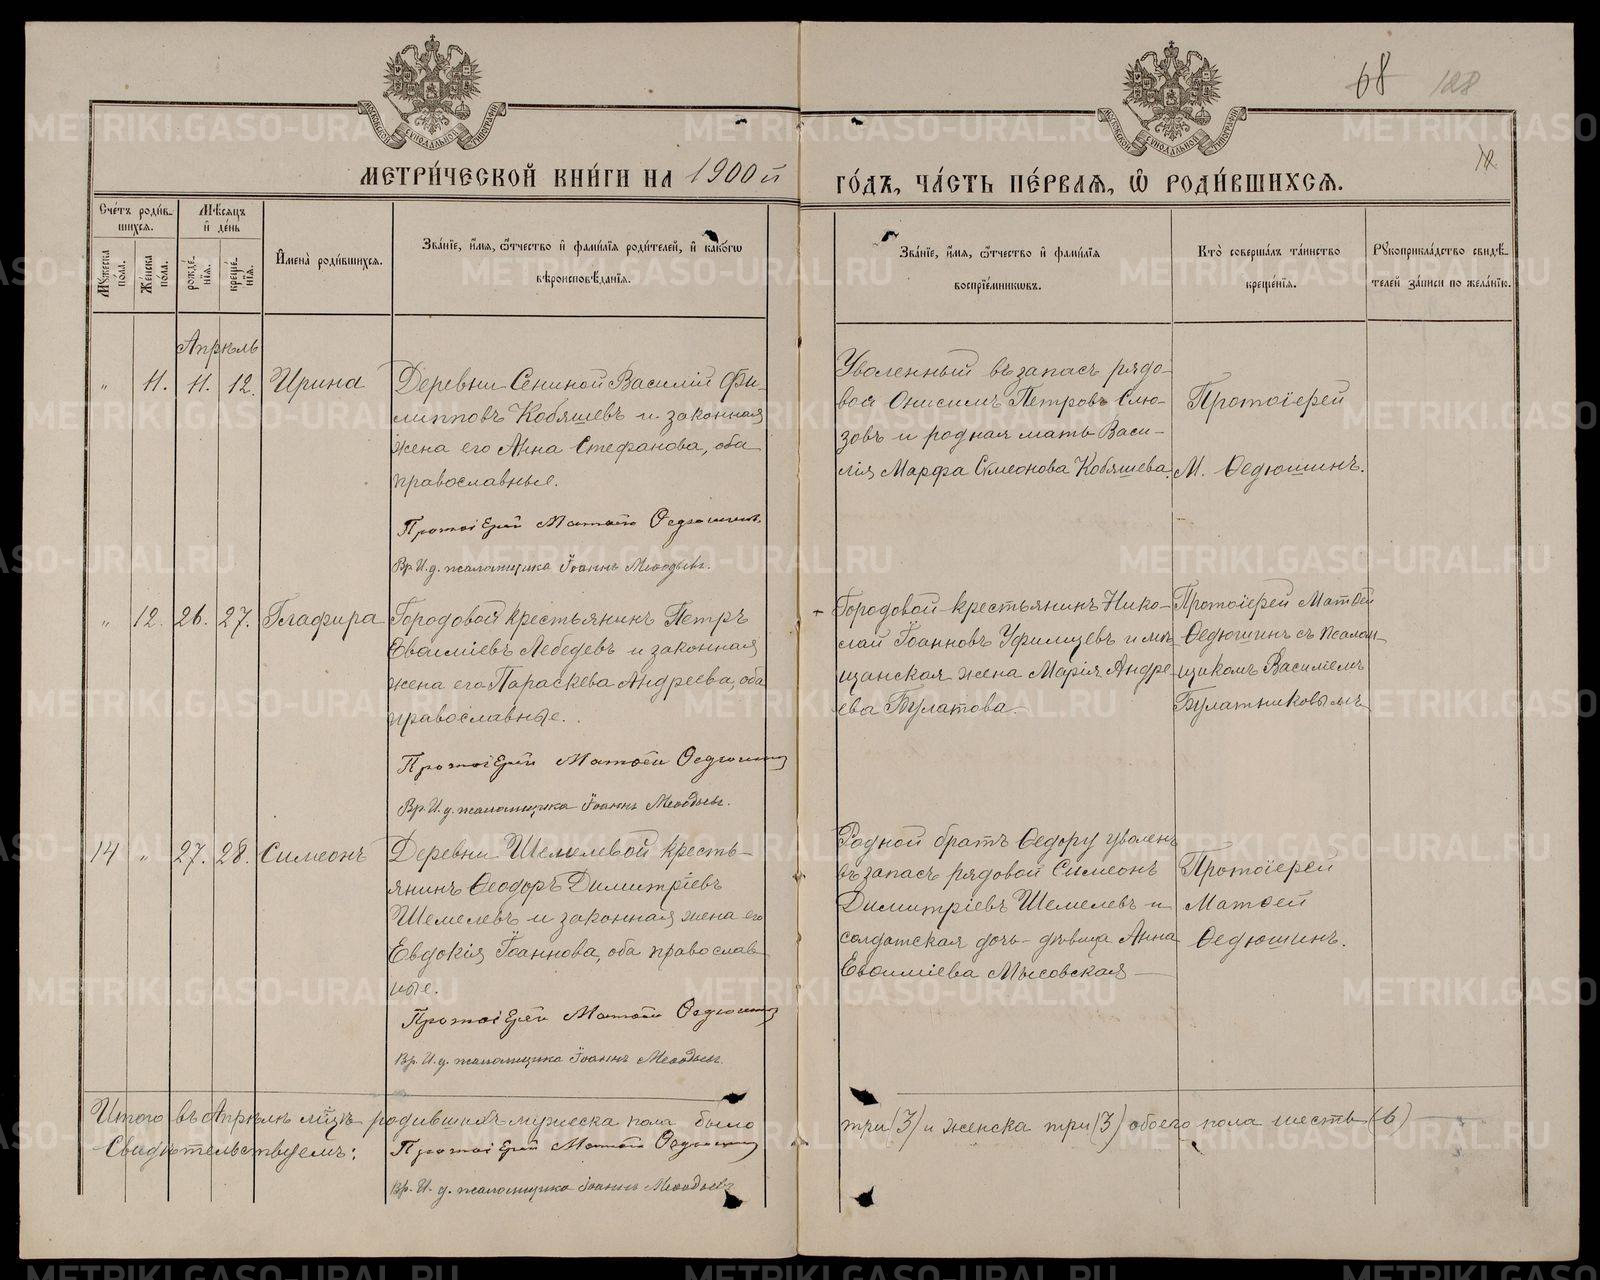 68 128
МЕТРИ́ЧЕСКОЙ КНИ́ГИ НА 1900 й ГО́ДЪ, ЧА́СТЬ ПЕ́РВАЯ, Ѽ РОДИ́ВШИХСЯ.
Сче́тъ роди́в-
шихся.
Мѣ́сяцъ
и҆ де́нь
Мꙋ́жеска
по́ла.
Же́нска
по́ла.
рожде́-
нїя.
креще́-
нїя.
И҆мена̀ роди́вшихся.
Зва́нїе, и҆́мя, ѻ҆́тчество и҆ фами́лїя роди́телей, и҆ како́гѡ
вѣроисповѣ́данїя.
Зва́нїе, и҆́мя, ѻ҆́тчество и҆ фами́лїя
воспрїе́мникѡвъ.
Кто̀ соверша́лъ та́инство
креще́нїя.
Рꙋкоприкла́дство свидѣ́-
телей за́писи по жела́нїю.
Апрѣль
„ 11. 11. 12. Ирина
Деревни Сениной Василій Фи-
липповъ Кобяшевъ и законная
жена его Анна Стефанова, оба
православные.
Протоіерей Матѳей Ѳедюшинъ
Вр. И. д. псаломщика Іоаннъ Меѳодьевъ.
Уволенный въ запасъ рядо-
вой Онисимъ Петровъ Слю-
зовъ и родная мать Васи-
лія Марфа Симеонова Кобяшева.
Протоіерей
М. Ѳедюшинъ.
„ 12. 26. 27. Глафира
Городовой крестьянинъ Петръ
Евѳиміевъ Лебедевъ и законная
жена его Параскева Андреева, оба
православные.
Протоіерей Матѳей Ѳедюшинъ
Вр. И. д. псаломщика Іоаннъ Меѳодьевъ.
+ Городовой крестьянинъ Нико-
лай Іоанновъ Уфимцевъ и мѣ-
щанская жена Марія Андре-
ева Булатова
Протоіерей Матѳей
Ѳедюшинъ съ псалом-
щикомъ Василіемъ
Булатниковымъ
14 „ 27. 28. Симеонъ
Деревни Шемелевой кресть-
янинъ Ѳеодоръ Димитріевъ
Шемелевъ и законная жена его
Евдокія Іоаннова, оба православ-
ные.
Протоіерей Матѳей Ѳедюшинъ
Вр. И. д. псаломщика Іоаннъ Меѳодьевъ.
Родной братъ Ѳедору уволен.
въ запасъ рядовой Симеонъ
Димитріевъ Шемелевъ и
солдатская дочь-дѣвица Анна
Евѳиміева Мысовская
Протоіерей
Матѳей
Ѳедюшинъ.
Итого въ Апрѣлѣ м-цѣ родившихъ мужеска пола было три (3) и женска три (3) обоего пола шесть (6)
Свидѣтельствуемъ: Протоіерей Матѳей Ѳедюшинъ
Вр. И. д. псаломщика Іоаннъ Меѳодьевъ